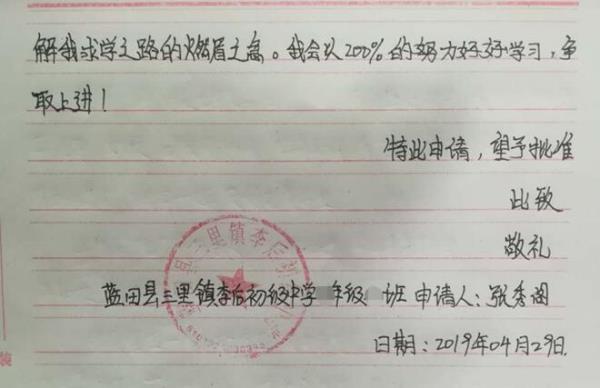 解我求学之路的燃眉之急。我会以200%的努力好好学习，争
取上进！
特此申请，望予批准
比致
敬礼
蓝田县三里镇李后初级中学 年级 班 申请人：张秀阁
日期：2019年04月29日.
县三里镇李后初
装